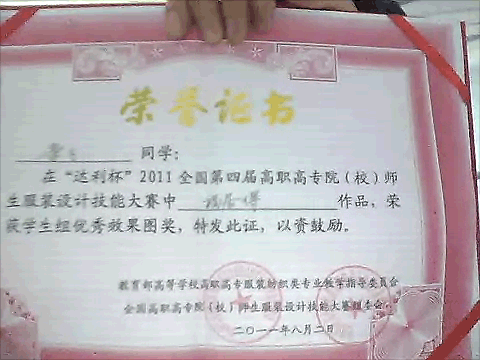 荣誉证书
同学：
在“达利杯”2011全国第四届高职高专院（校）师
生服装设计技能大赛中 作品，荣
获学生组优秀效果图奖，特发此证，以资鼓励。
教育部高等学校高职高专服装纺织类专业教学指导委员会
全国高职高专院（校）师生服装设计技能大赛组委会
二〇一一年八月二日